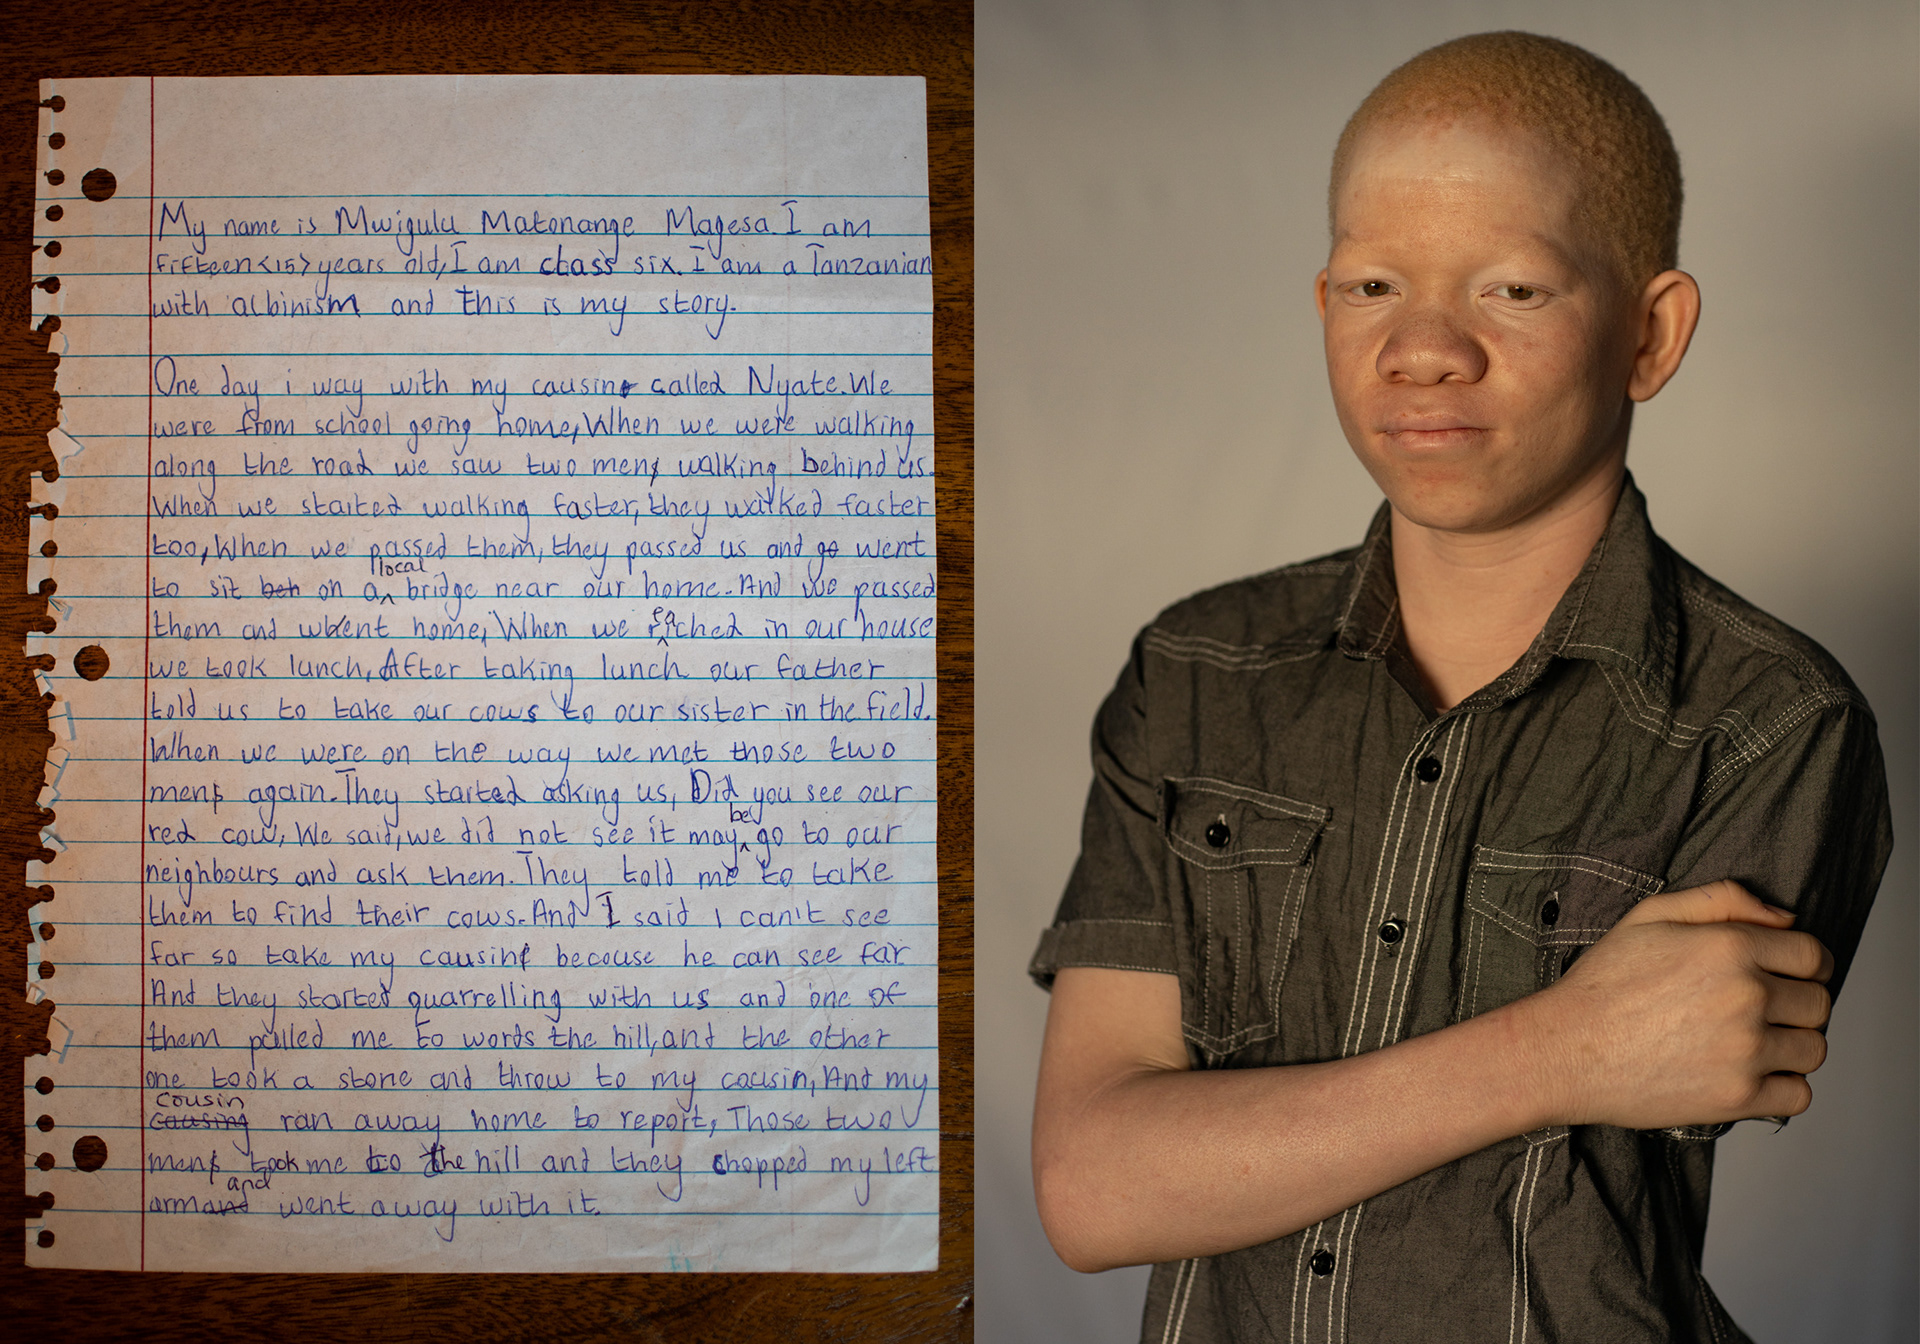 My name is Mwigulu Matonange Magesa. I am
fifteen <15> years old, I am class six. I am a Tanzanian
with albinism and this is my story.
One day i way with my causin called Nyate. We
were from school going home, When we were walking
along the road we saw two men walking behind us.
When we started walking faster, they walked faster
too, When we passed them, they passed us and go went
to sit beh on a local bridge near our home. And we passed
them and went home, When we reached in our house
we took lunch, After taking lunch our father
told us to take our cows to our sister in the field.
When we were on the way we met those two
men again. They started asking us, Did you see our
red cow, We said, we did not see it may be go to our
neighbours and ask them. They told me to take
them to find their cows. And I said I can't see
far so take my causin because he can see far
And they started quarrelling with us and one of
them pulled me to words the hill, and the other
one took a stone and throw to my cousin, And my
causing cousin ran away home to report, Those two
men took me to the hill and they chopped my left
arm and and went away with it.